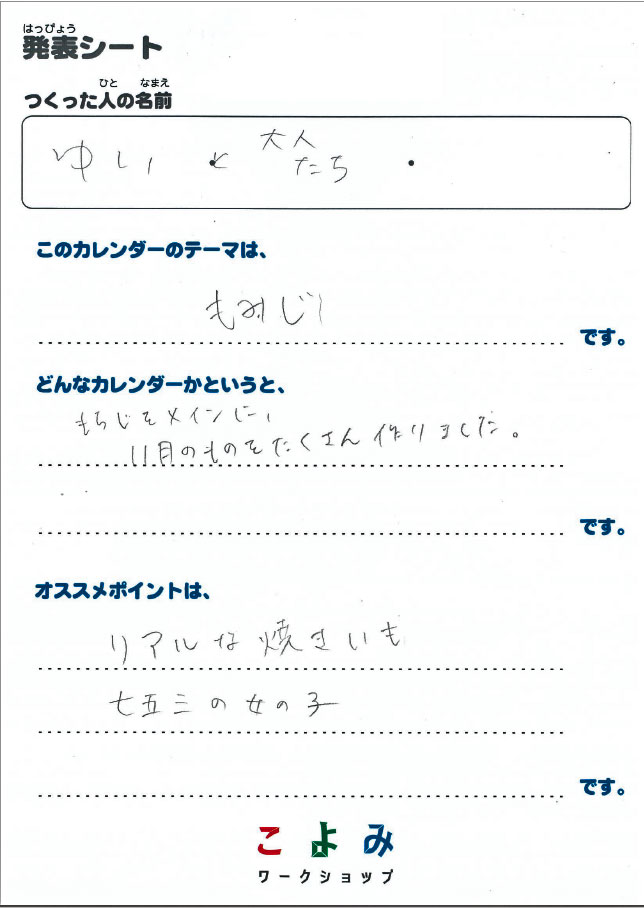 はっぴょう
発表シート
ひと なまえ
つくった人の名前
ゆい と 大人たち
このカレンダーのテーマは、
もみじ
です。
どんなカレンダーかというと、
もみじをメインに、
11月のものをたくさん作りました。
です。
オススメポイントは、
リアルな焼きいも
七五三の女の子
です。
こよみ
ワークショップ